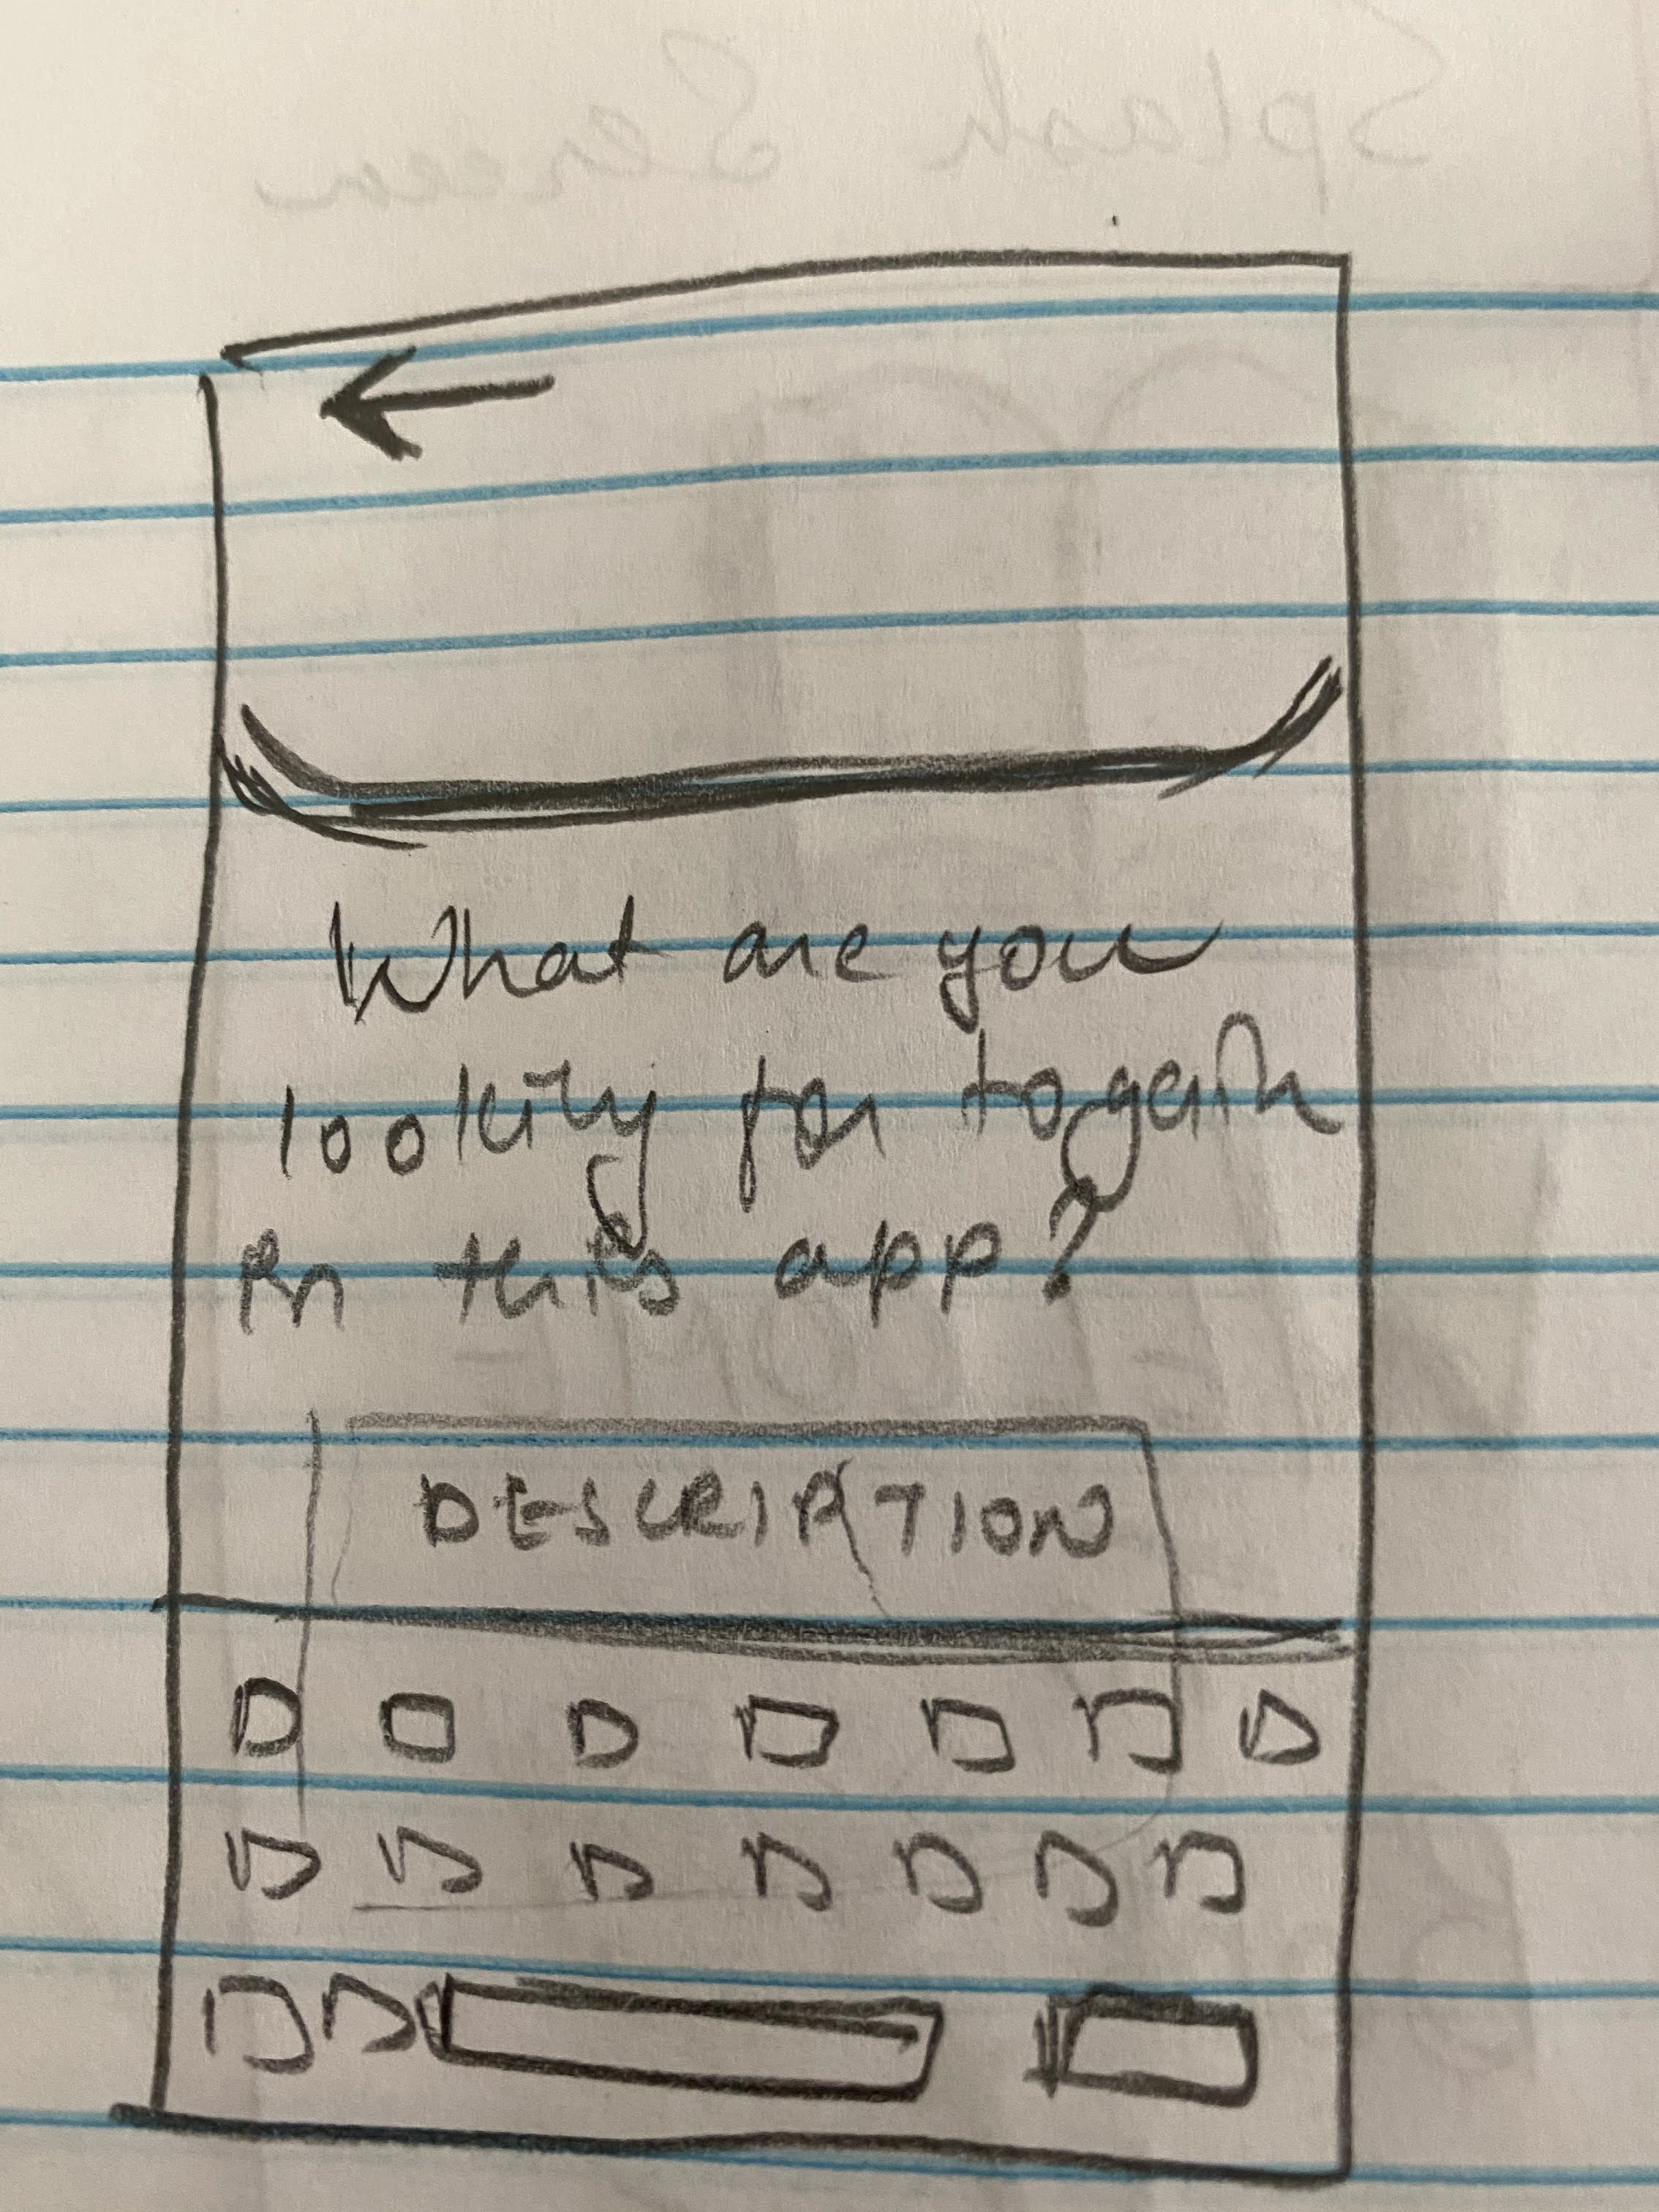 Splash Screen
What are you
looking for to gain
in this app?
DESCRIPTION